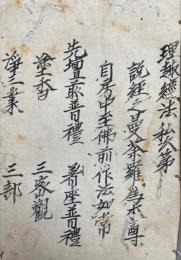 理趣經法私次第
説經之曼荼羅座不尊
自房中至佛前作法如常
先壇前普禮　着座普禮
塗香　三密觀
淨三業　三部